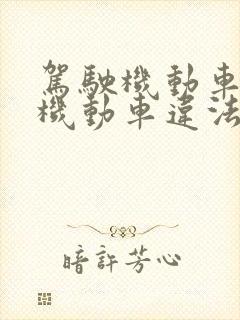 駕駛機動車
機動車違法
暗許芳心